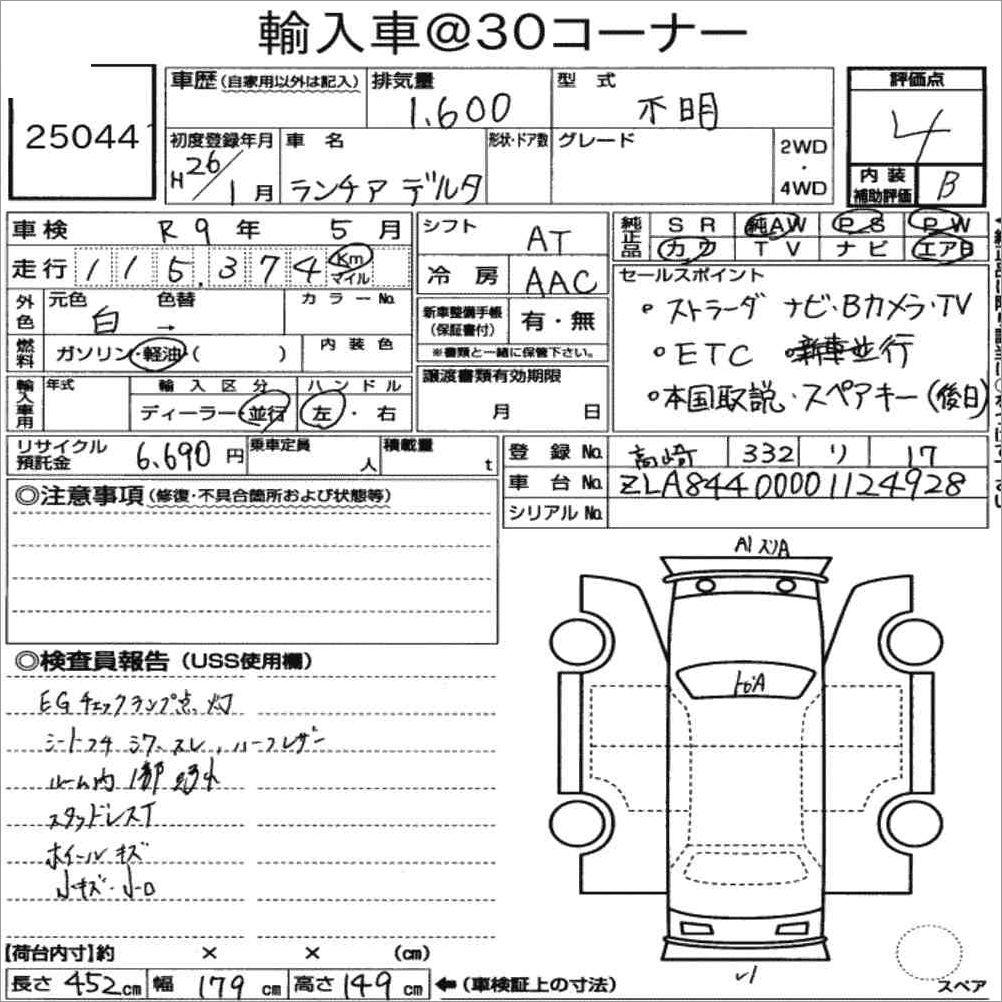 輸入車@30コーナー
25044
車歴(自家用以外は記入) 排気量 1.600 型式 不明 評価点 4
初度登録年月 H26/1月 車名 ランチア デルタ 形状・ドア数 グレード 2WD・4WD
内装補助評価 B
車検 R9年 5月 シフト AT 純正品 SR 純AW PS PW
走行 115,374 Km マイル 冷房 AAC カワ TV ナビ エアB
外色 元色 白 色替 → カラーNo. 新車整備手帳(保証書付) 有・無
※書類と一緒に保管下さい。
燃料 ガソリン・軽油・( ) 内装色
セールスポイント
・ストラーダ ナビ・Bカメラ・TV
・ETC 新車並行
・本国取説・スペアキー(後日)
輸入車用 年式 輸入区分 ディーラー・並行 ハンドル 左・右 譲渡書類有効期限 月 日
リサイクル預託金 6,690円 乗車定員 人 積載量 t
登録No. 高崎 332 り 17
車台No. ZLA84400001124928
シリアルNo.
◎注意事項(修復・不具合箇所および状態等)
◎検査員報告(USS使用欄)
EGチェックランプ点灯
シートコゲ シワ、スレ、ハーフレザー
ルーム内 1部
スタッドレスT
ホイールキズ
小キズ・小凹
A1 スリA
トビA
【荷台内寸】約 × × (cm)
長さ 452cm 幅 179cm 高さ 149cm ←(車検証上の寸法)
スペア